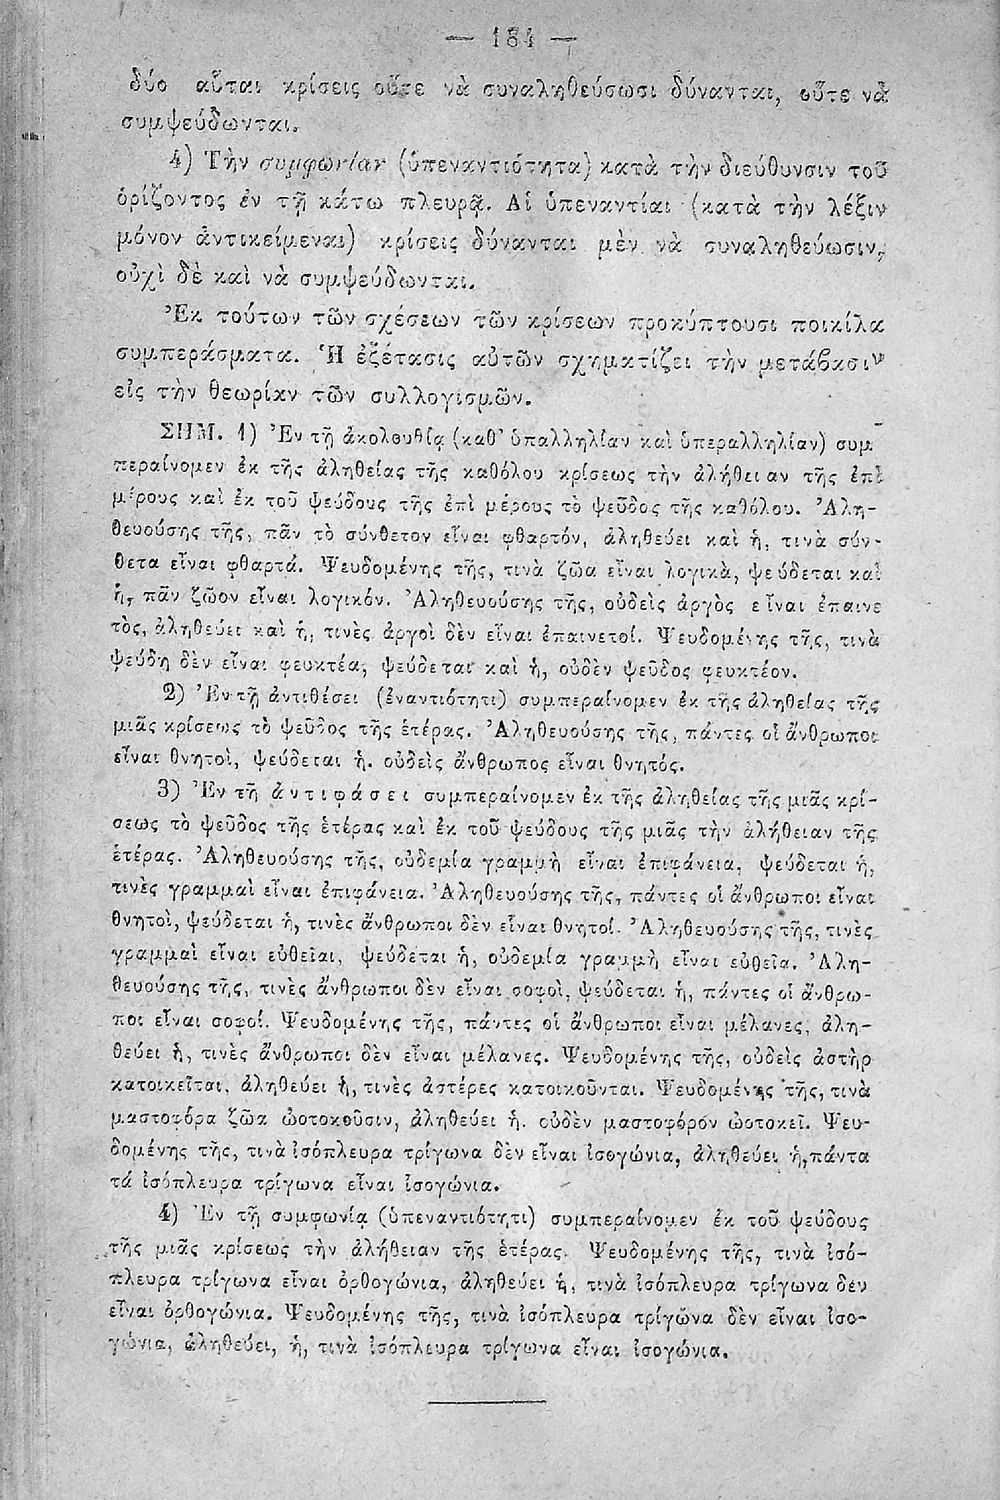 — 184 —
δύο αὗται κρίσεις οὔτε νὰ συναληθεύσωσι δύνανται, οὔτε νὰ
συμψεύδωνται.
4) Τὴν συμφωνίαν (ὑπεναντιότητα) κατὰ τὴν διεύθυνσιν τοῦ
ὁρίζοντος ἐν τῇ κάτω πλευρᾷ. Αἱ ὑπεναντίαι (κατὰ τὴν λέξιν
μόνον ἀντικείμεναι) κρίσεις δύνανται μὲν νὰ συναληθεύωσιν,
οὐχὶ δὲ καὶ νὰ συμψεύδωνται.
Ἐκ τούτων τῶν σχέσεων τῶν κρίσεων προκύπτουσι ποικίλα
συμπεράσματα. Ἡ ἐξέτασις αὐτῶν σχηματίζει τὴν μετάβασιν
εἰς τὴν θεωρίαν τῶν συλλογισμῶν.
ΣΗΜ. 1) Ἐν τῇ ἀκολουθίᾳ (καθ' ὑπαλληλίαν καὶ ὑπεραλληλίαν) συμ-
περαίνομεν ἐκ τῆς ἀληθείας τῆς καθόλου κρίσεως τὴν ἀλήθειαν τῆς ἐπὶ
μέρους καὶ ἐκ τοῦ ψεύδους τῆς ἐπὶ μέρους τὸ ψεῦδος τῆς καθόλου. Ἀλη-
θευούσης τῆς, πᾶν τὸ σύνθετον εἶναι φθαρτόν, ἀληθεύει καὶ ἡ, τινὰ σύν-
θετα εἶναι φθαρτά. Ψευδομένης τῆς, τινὰ ζῶα εἶναι λογικὰ, ψεύδεται καὶ
ἡ, πᾶν ζῶον εἶναι λογικόν. Ἀληθευούσης τῆς, οὐδεὶς ἀργὸς εἶναι ἐπαινε
τὸς, ἀληθεύει καὶ ἡ, τινὲς ἀργοὶ δὲν εἶναι ἐπαινετοί. Ψευδομένης τῆς, τινὰ
ψεύδη δὲν εἶναι φευκτέα, ψεύδεται καὶ ἡ, οὐδὲν ψεῦδος φευκτέον.
2) Ἐν τῇ ἀντιθέσει (ἐναντιότητι) συμπεραίνομεν ἐκ τῆς ἀληθείας τῆς
μιᾶς κρίσεως τὸ ψεῦδος τῆς ἑτέρας. Ἀληθευούσης τῆς, πάντες οἱ ἄνθρωποι
εἶναι θνητοὶ, ψεύδεται ἡ. οὐδεὶς ἄνθρωπος εἶναι θνητός.
3) Ἐν τῇ ἀντιφάσει συμπεραίνομεν ἐκ τῆς ἀληθείας τῆς μιᾶς κρί-
σεως τὸ ψεῦδος τῆς ἑτέρας καὶ ἐκ τοῦ ψεύδους τῆς μιᾶς τὴν ἀλήθειαν τῆς
ἑτέρας. Ἀληθευούσης τῆς, οὐδεμία γραμμὴ εἶναι ἐπιφάνεια, ψεύδεται ἡ,
τινὲς γραμμαὶ εἶναι ἐπιφάνεια. Ἀληθευούσης τῆς, πάντες οἱ ἄνθρωποι εἶναι
θνητοὶ, ψεύδεται ἡ, τινὲς ἄνθρωποι δὲν εἶναι θνητοί. Ἀληθευούσης τῆς, τινὲς
γραμμαὶ εἶναι εὐθεῖαι, ψεύδεται ἡ, οὐδεμία γραμμὴ εἶναι εὐθεῖα. Ἀλη-
θευούσης τῆς, τινὲς ἄνθρωποι δὲν εἶναι σοφοὶ, ψεύδεται ἡ, πάντες οἱ ἄνθρω-
ποι εἶναι σοφοί. Ψευδομένης τῆς, πάντες οἱ ἄνθρωποι εἶναι μέλανες, ἀλη-
θεύει ἡ, τινὲς ἄνθρωποι δὲν εἶναι μέλανες. Ψευδομένης τῆς, οὐδεὶς ἀστὴρ
κατοικεῖται, ἀληθεύει ἡ, τινὲς ἀστέρες κατοικοῦνται. Ψευδομένης τῆς, τινὰ
μαστοφόρα ζῶα ὠοτοκοῦσιν, ἀληθεύει ἡ. οὐδὲν μαστοφόρον ὠοτοκεῖ. Ψευ-
δομένης τῆς, τινὰ ἰσόπλευρα τρίγωνα δὲν εἶναι ἰσογώνια, ἀληθεύει ἡ, πάντα
τά ἰσόπλευρα τρίγωνα εἶναι ἰσογώνια.
4) Ἐν τῇ συμφωνίᾳ (ὑπεναντιότητι) συμπεραίνομεν ἐκ τοῦ ψεύδους
τῆς μιᾶς κρίσεως τὴν ἀλήθειαν τῆς ἑτέρας. Ψευδομένης τῆς, τινὰ ἰσό-
πλευρα τρίγωνα εἶναι ὀρθογώνια, ἀληθεύει ἡ, τινὰ ἰσόπλευρα τρίγωνα δὲν
εἶναι ὀρθογώνια. Ψευδομένης τῆς, τινὰ ἰσόπλευρα τρίγωνα δὲν εἶναι ἰσο-
γώνια, ἀληθεύει, ἡ, τινὰ ἰσόπλευρα τρίγωνα εἶναι ἰσογώνια.